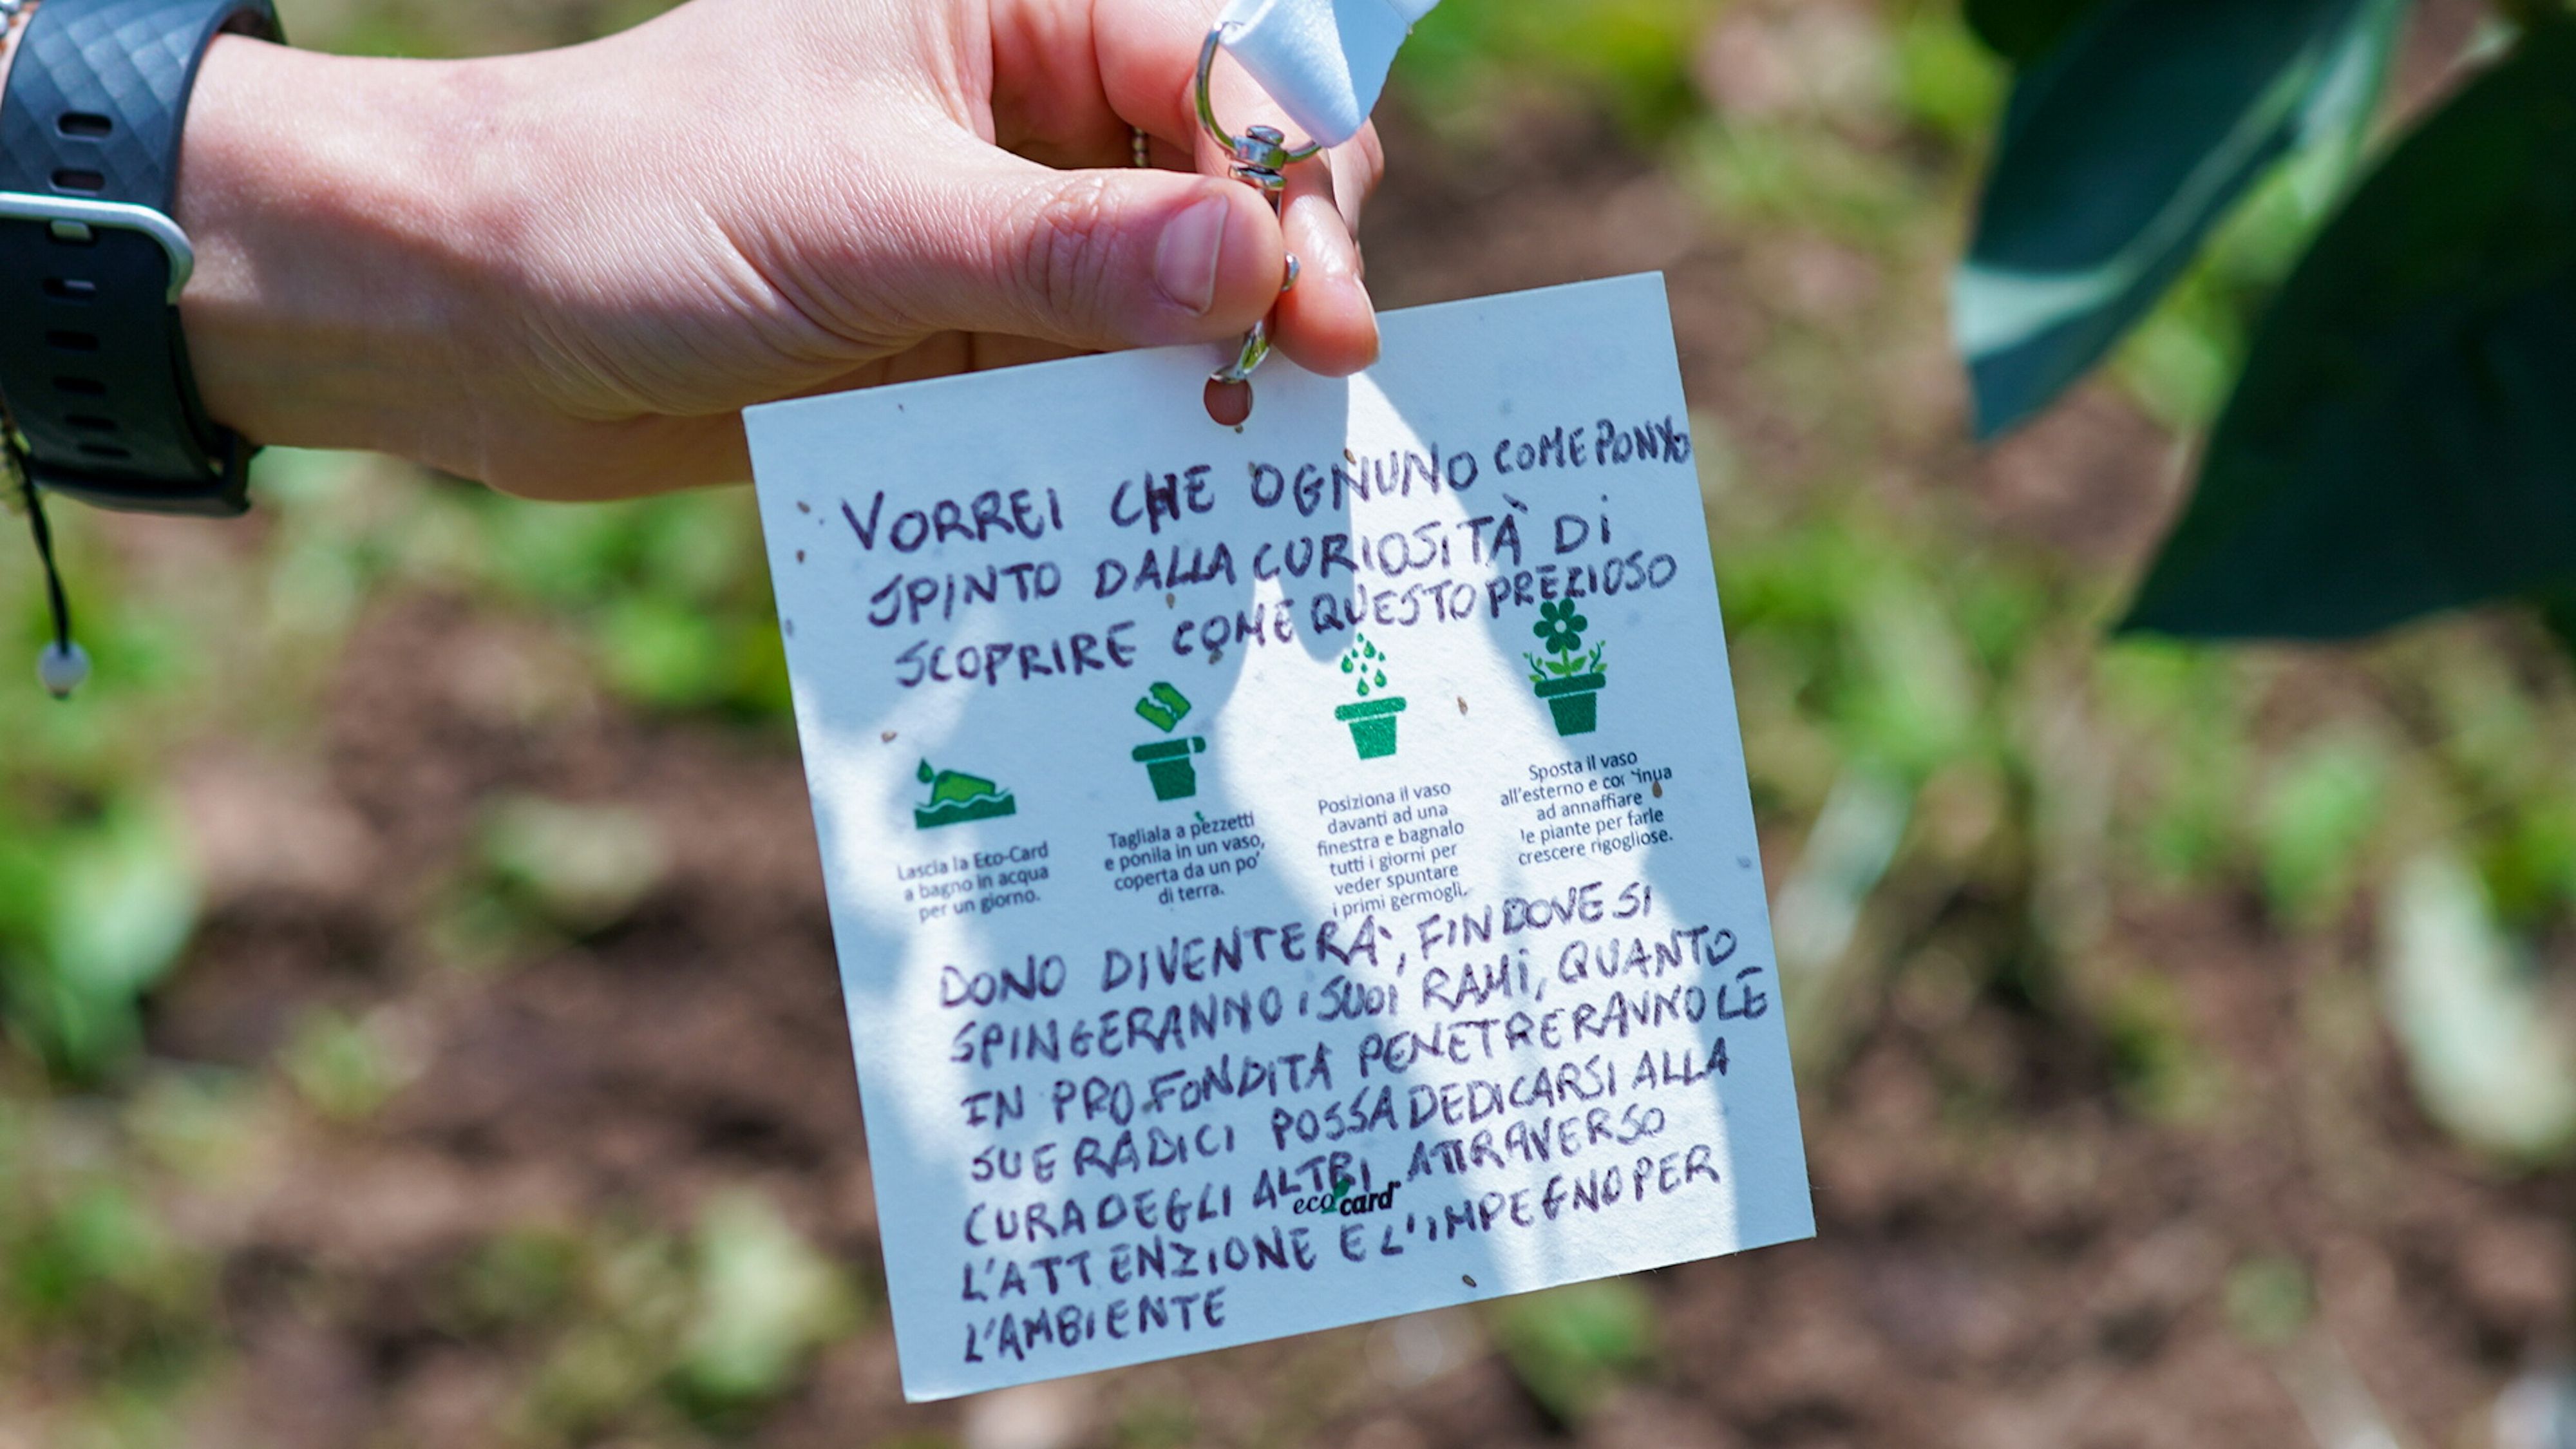 VORREI CHE OGNUNO COME
SPINTO DALLA CURIOSITÀ DI
SCOPRIRE COME QUESTO PREZIOSO
Lascia la Eco-Card
a bagno in acqua
per un giorno.
Tagliala a pezzetti
e ponila in un vaso,
coperta da un po'
di terra.
Posiziona il vaso
davanti ad una
finestra e bagnalo
tutti i giorni per
veder spuntare
i primi germogli.
Sposta il vaso
all'esterno e continua
ad annaffiare
le piante per farle
crescere rigogliose.
DONO DIVENTERÀ, FIN DOVE SI
SPINGERANNO I SUOI RAMI, QUANTO
IN PROFONDITÀ PENETRERANNO LE
SUE RADICI POSSA DEDICARSI ALLA
CURA DEGLI ALTRI ATTRAVERSO
eco card
L'ATTENZIONE E L'IMPEGNO PER
L'AMBIENTE